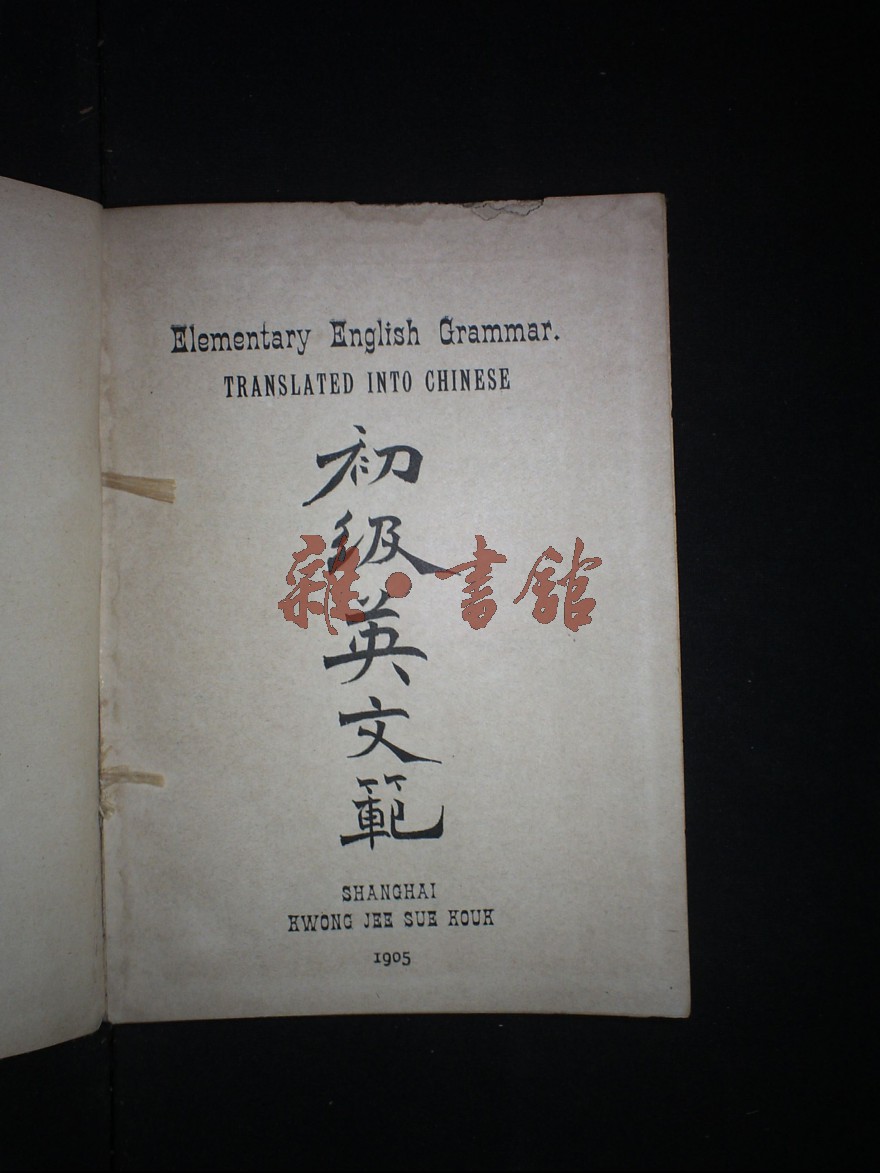 Elementary English Grammar.
TRANSLATED INTO CHINESE
初級英文範
雜·書館
SHANGHAI
KWONG JEE SUE KOUK
1905